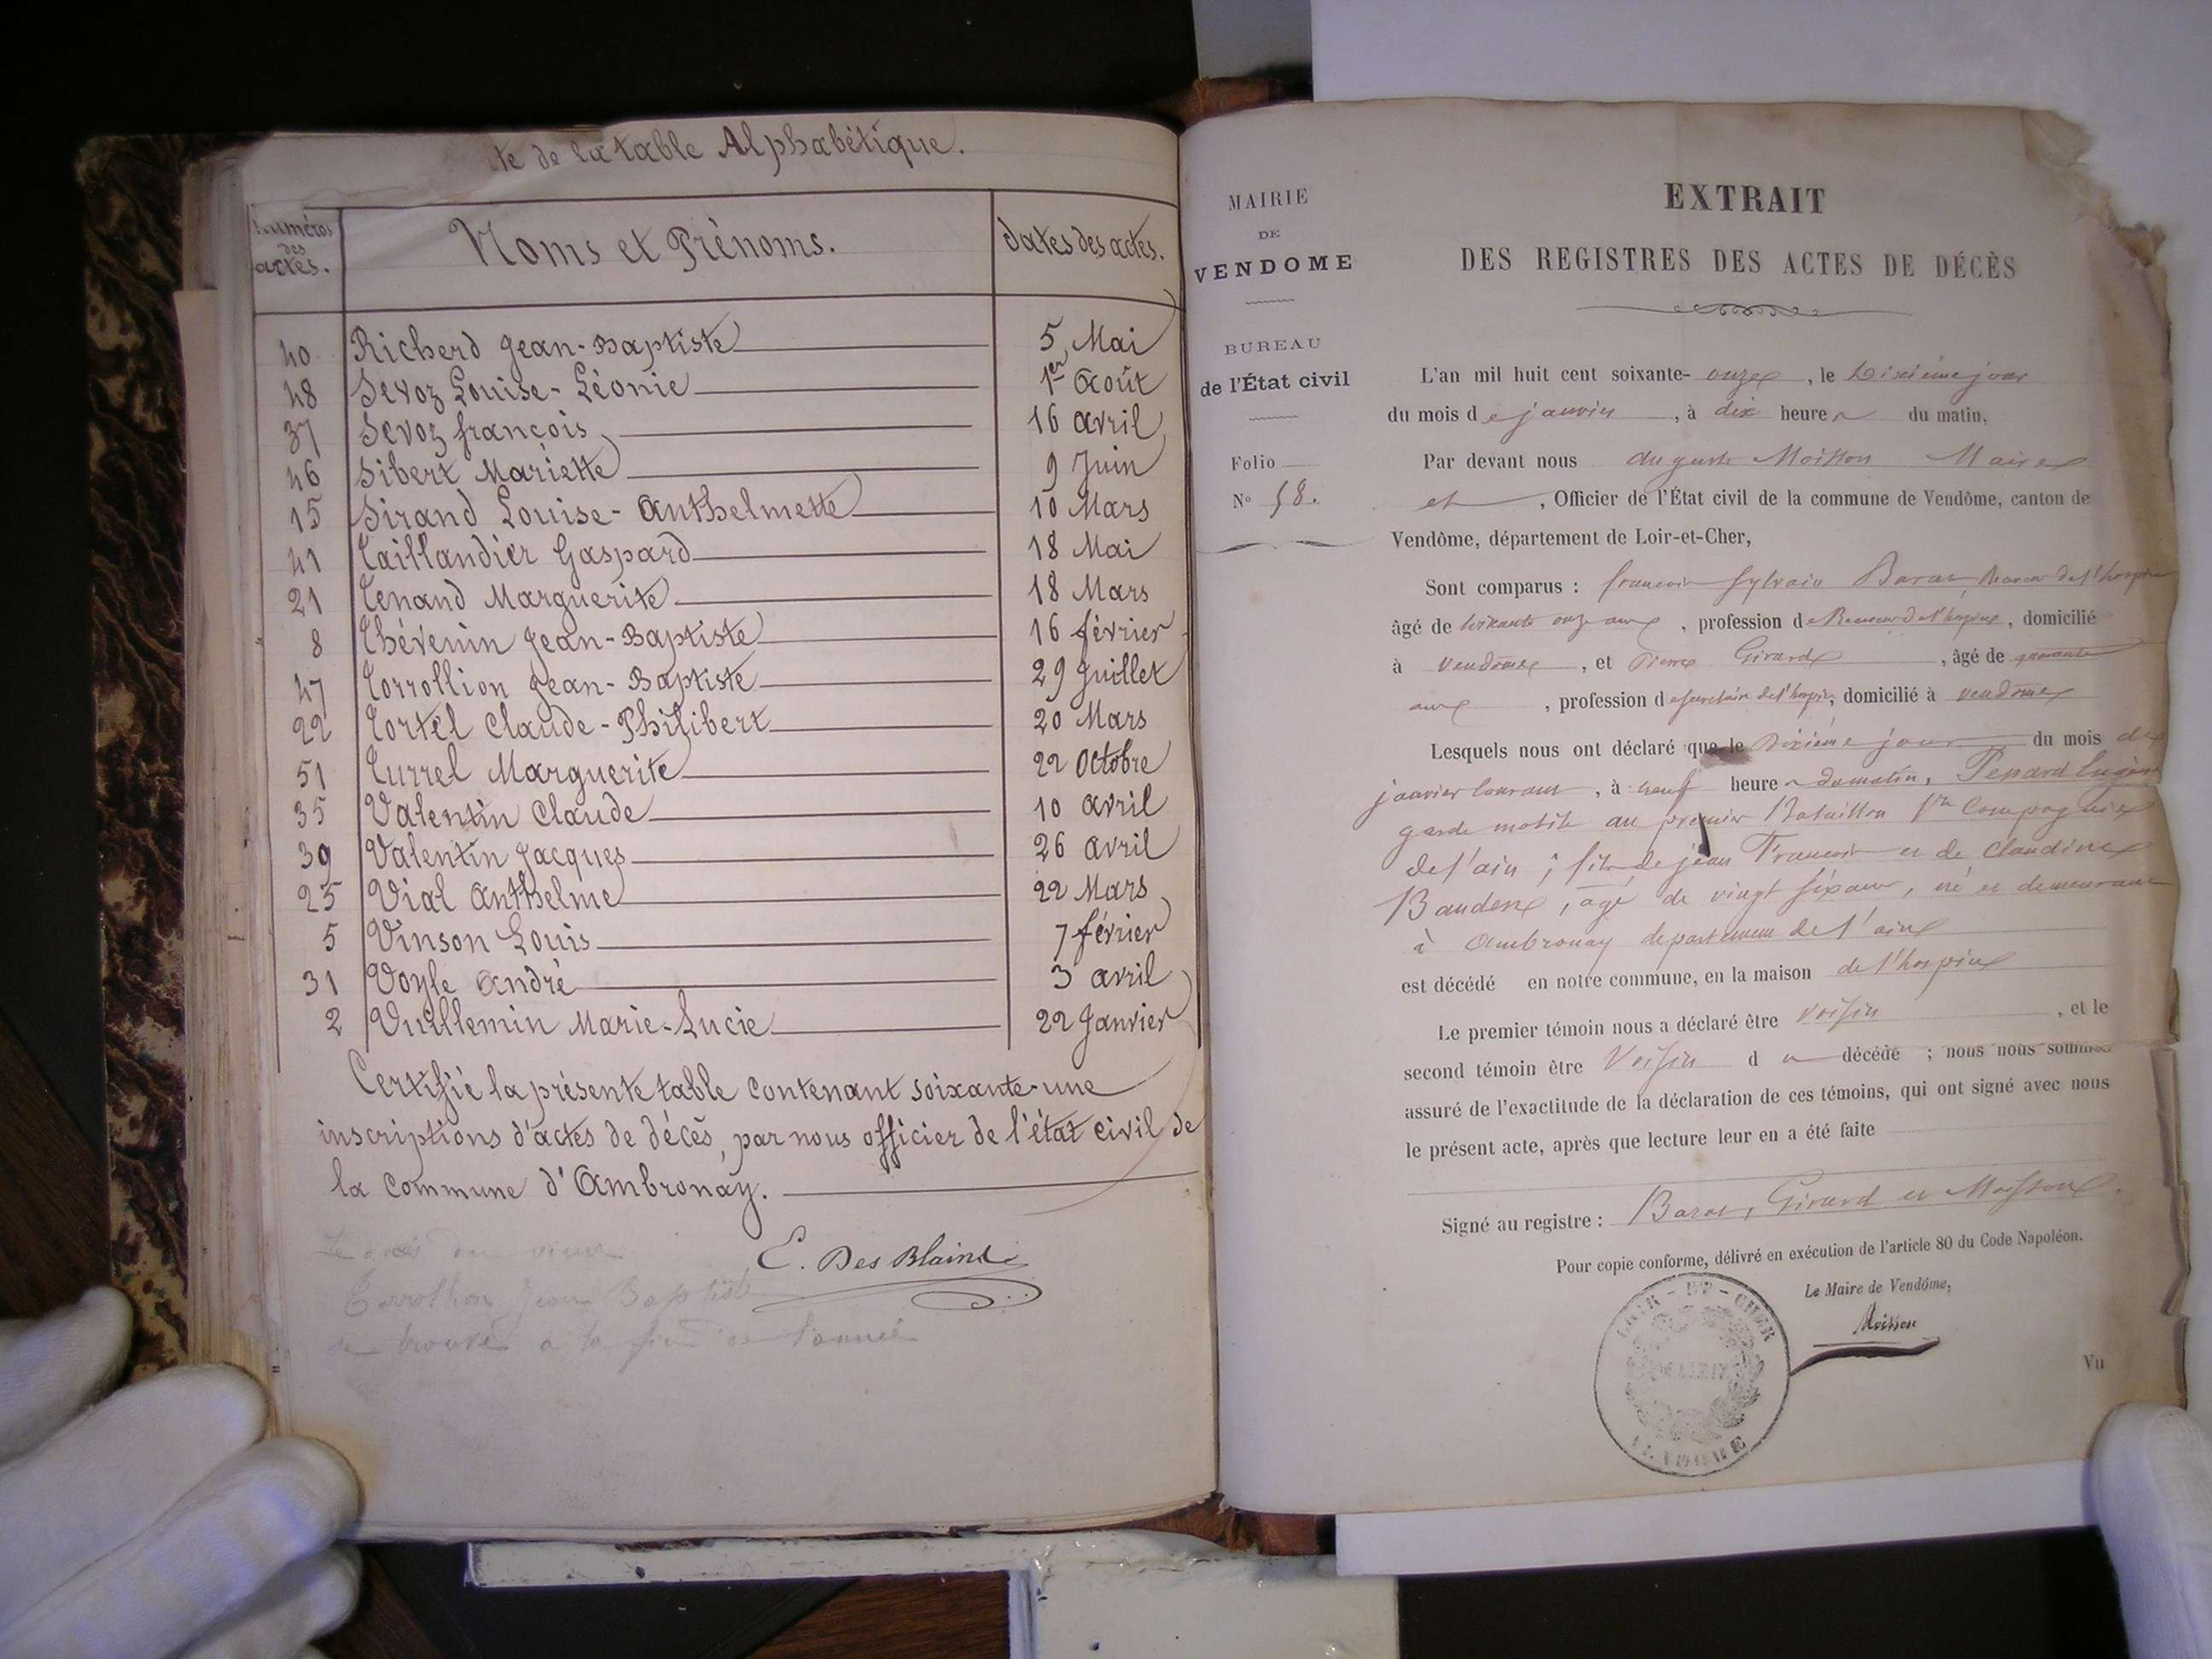 te de la table Alphabétique.
Numéros des actes.
Noms et Prénoms.
dates des actes.
40 Richerd Jean-Baptiste 5 Mai
48 Sevoz Louise-Léonie 1er Août
37 Sevoz françois 16 avril
46 Sibert Mariette 9 Juin
15 Sirand Louise-Anthelmette 10 Mars
41 Taillandier Gaspard 18 Mai
21 Tenand Marguerite 18 Mars
8 Thévenin Jean-Baptiste 16 février
47 Torrollion Jean-Baptiste 29 Juillet
22 Tortel Claude-Philibert 20 Mars
51 Turrel Marguerite 22 Octobre
35 Valentin Claude 10 avril
39 Valentin Jacques 26 avril
25 Vial Anthelme 22 Mars
5 Vinson Louis 7 février
31 Voyle André 3 avril
2 Vuillemin Marie-Lucie 22 Janvier
Certifié la présente table contenant soixante-une
inscriptions d'actes de décès, par nous officier de l'état civil de
la commune d'Ambronay.
E. Des Blains
Le décès du
Torrollion Jean Baptiste
se trouve a la fin de l'année
MAIRIE
DE
VENDOME
BUREAU
de l'État civil
Folio
No 58.
EXTRAIT
DES REGISTRES DES ACTES DE DÉCÈS
L'an mil huit cent soixante- onze, le Dixième jour
du mois de janvier, à dix heures du matin,
Par devant nous Auguste Moisson Maire
et, Officier de l'État civil de la commune de Vendôme, canton de
Vendôme, département de Loir-et-Cher,
Sont comparus : françois Sylvain Baras, de l'hospice
âgé de soixante onze ans, profession de de l'hospice, domicilié
à Vendôme, et Pierre Girard, âgé de quarante
ans, profession de secrétaire de l'hospice, domicilié à Vendôme
Lesquels nous ont déclaré que le Dixième jour du mois de
janvier courant, à neuf heures du matin, Penard Eugène
garde mobile au premier Bataillon 1re Compagnie
de l'ain, fils de jean François et de Claudine
Baudene, âgé de vingt six ans, né et demeurant
à Ambronay departement de l'ain
est décédé en notre commune, en la maison de l'hospice
Le premier témoin nous a déclaré être Voisin, et le
second témoin être Voisin d u décédé ; nous nous sommes
assuré de l'exactitude de la déclaration de ces témoins, qui ont signé avec nous
le présent acte, après que lecture leur en a été faite
Signé au registre : Baras, Girard et Moisson.
Pour copie conforme, délivré en exécution de l'article 80 du Code Napoléon.
Le Maire de Vendôme,
Moisson
LOIR-ET-CHER
MAIRIE
VENDOME
Vu